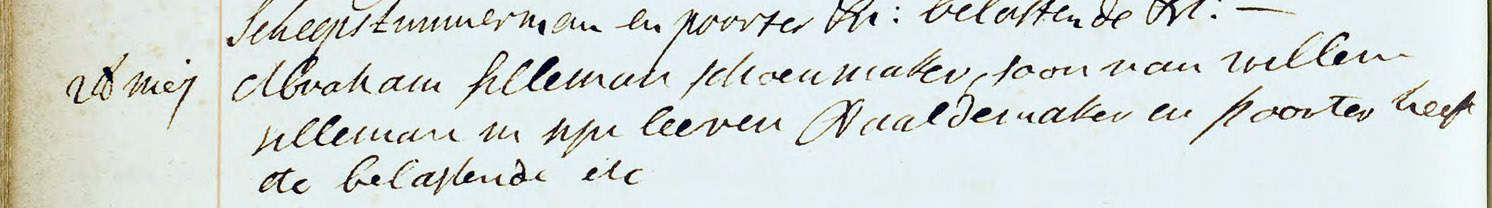 Scheepstimmerman en poorter &c: belastende &c: —
28 meij Abraham silleman schoenmaker, soon van willem
silleman in sijn leeven Naaldemaker en poorter heeft
etc belastende etc